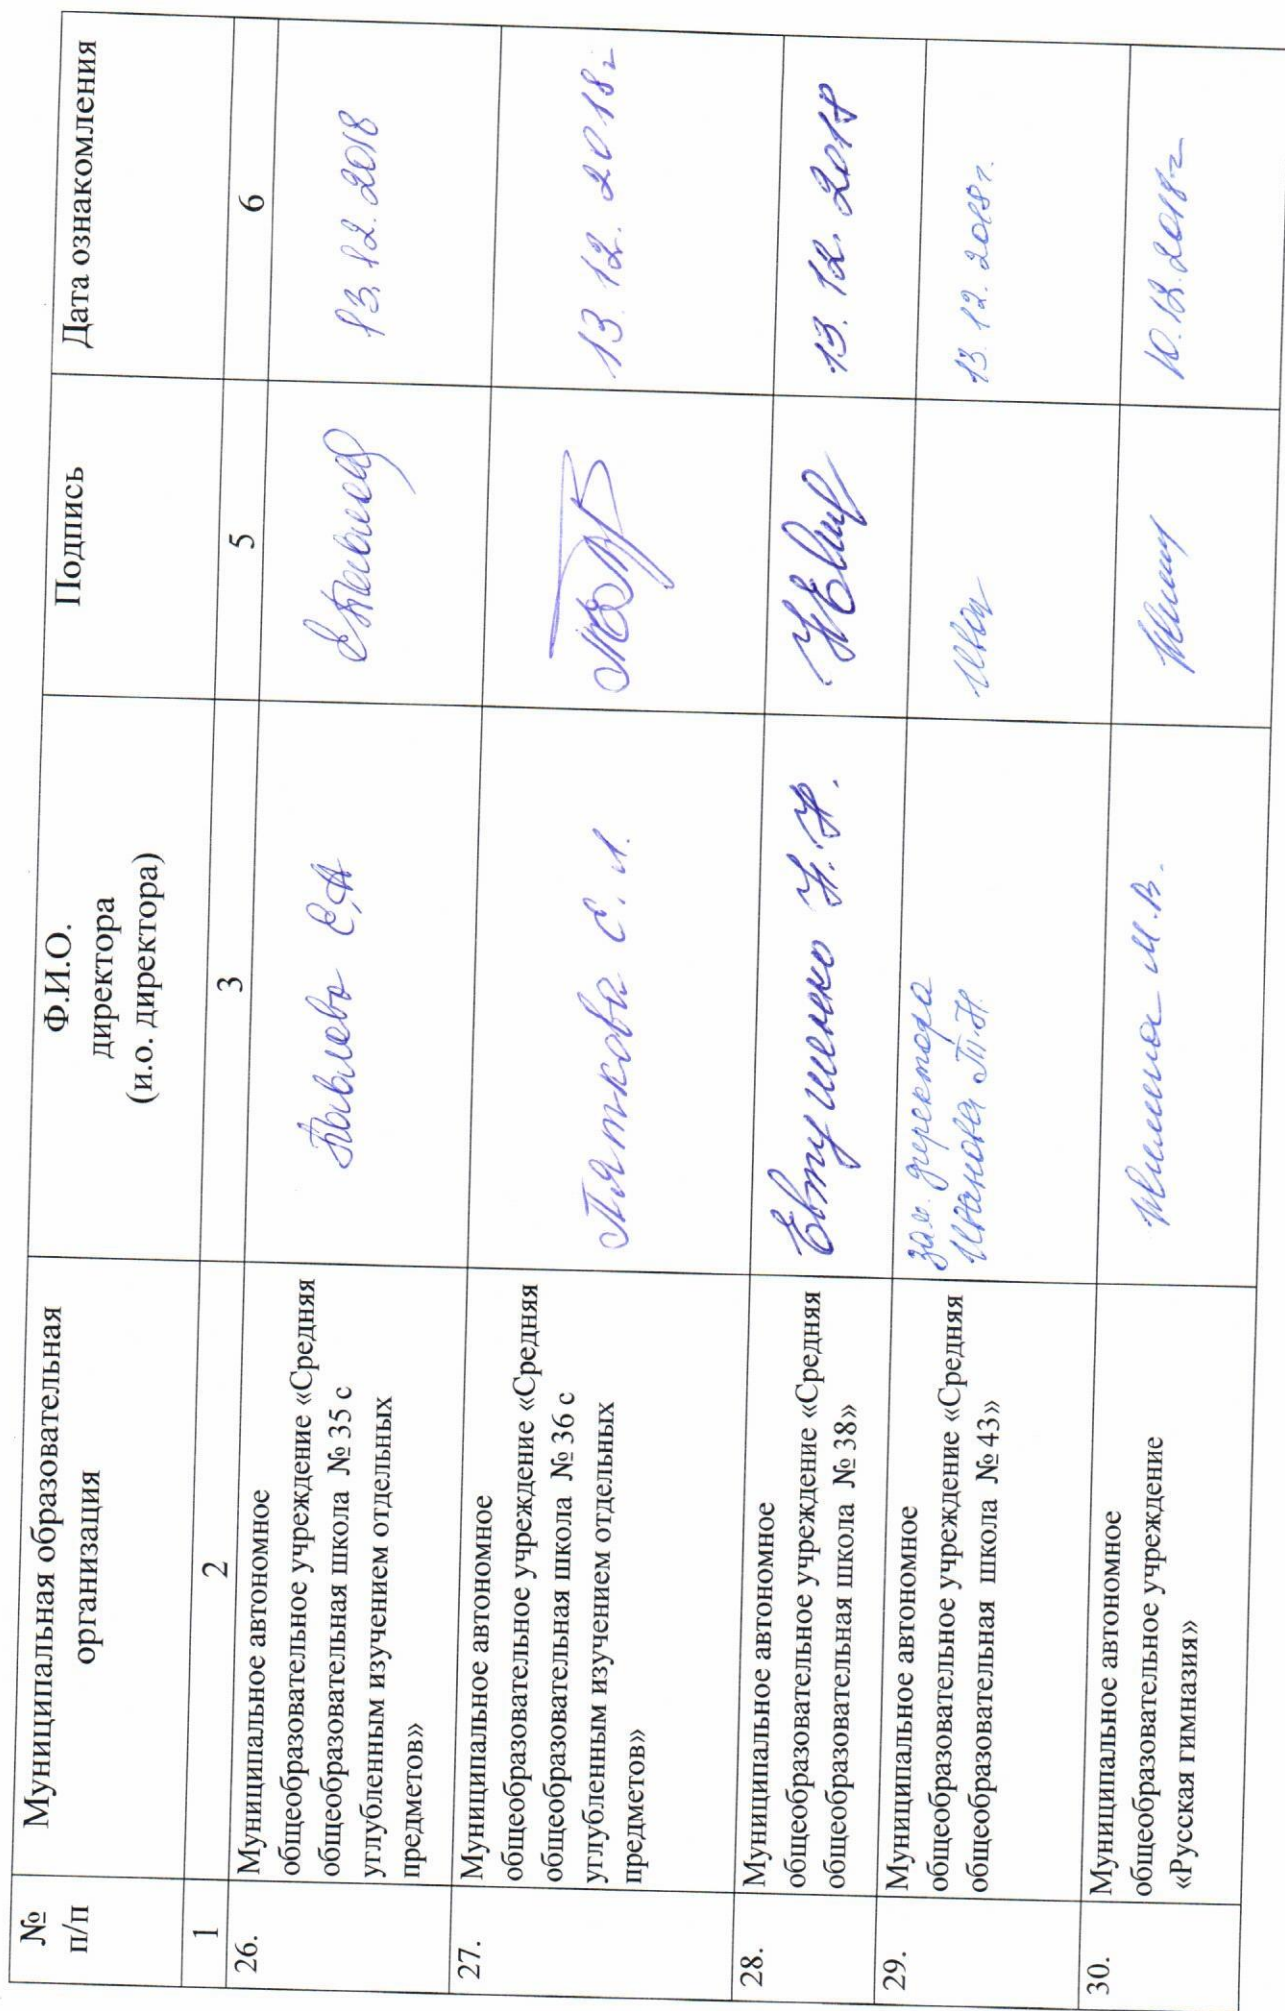 №
п/п
Муниципальная образовательная
организация
Ф.И.О.
директора
(и.о. директора)
Подпись
Дата ознакомления
1
2
3
5
6
26.
Муниципальное автономное
общеобразовательное учреждение «Средняя
общеобразовательная школа № 35 с
углубленным изучением отдельных
предметов»
С.А
13.12.2018
27.
Муниципальное автономное
общеобразовательное учреждение «Средняя
общеобразовательная школа № 36 с
углубленным изучением отдельных
предметов»
Пяткова С. Л.
13.12.2018г
28.
Муниципальное автономное
общеобразовательное учреждение «Средняя
общеобразовательная школа № 38»
Евтушенко Н.Н.
13.12.2018
29.
Муниципальное автономное
общеобразовательное учреждение «Средняя
общеобразовательная школа № 43»
зам. директора
Иванова Т.Н.
13.12.2018г.
30.
Муниципальное автономное
общеобразовательное учреждение
«Русская гимназия»
М.В.
10.12.2018г